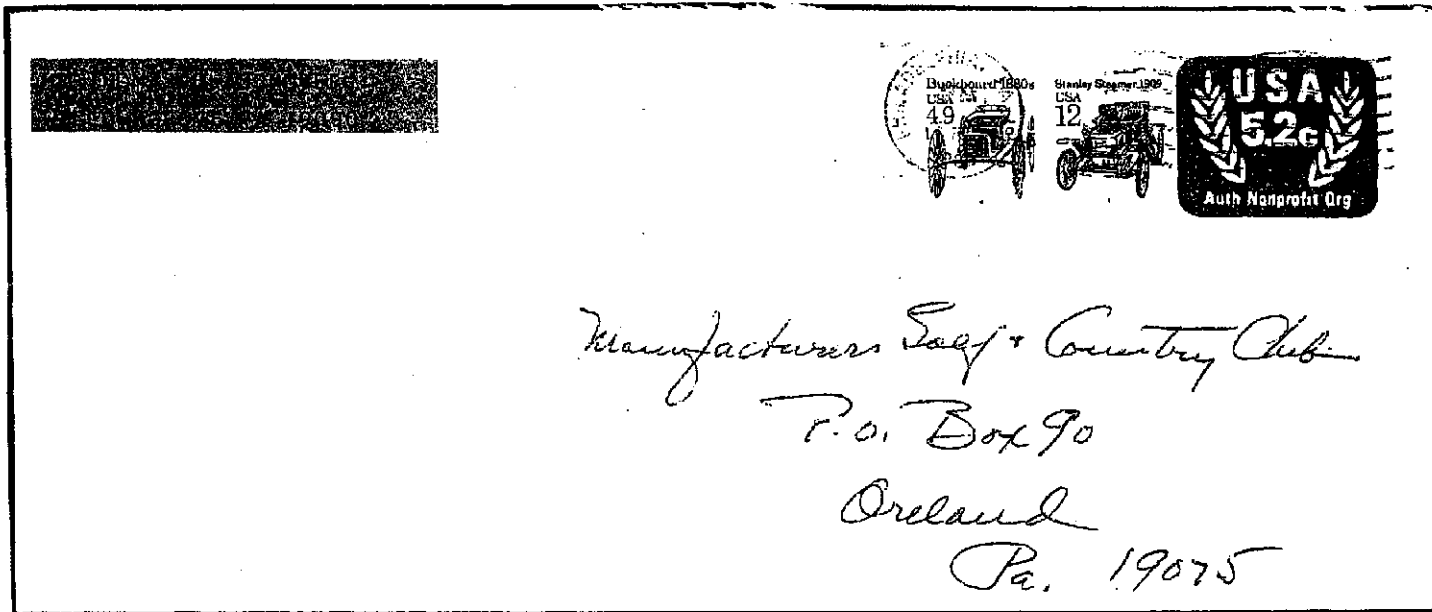 Buckboard 1880s
USA
4.9
Stanley Steamer 1909
USA
12
USA
5.2c
Auth Nonprofit Org
Manufacturers Golf & Country Club
P.O. Box 90
Oreland
Pa. 19075